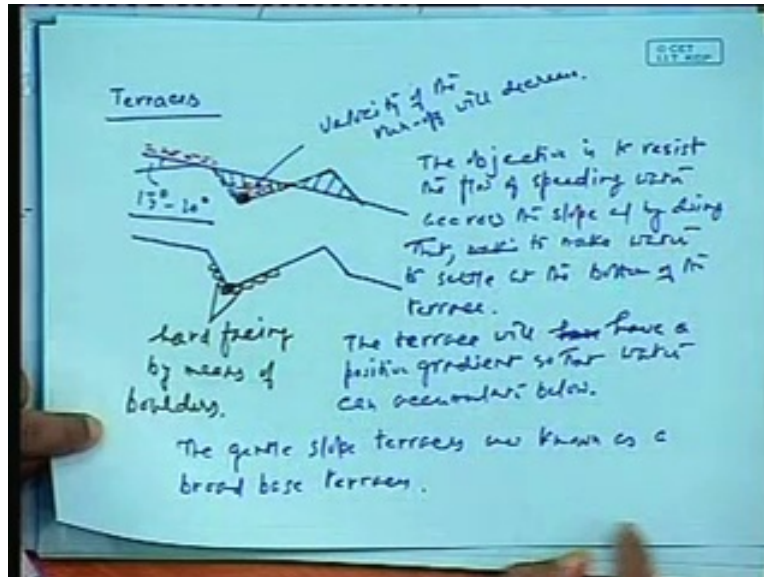 © CET
I.I.T. KGP
Terraces
Velocity of the
run-off will decrease.
15° - 20°
The objective is to resist
the flow of speeding water
across the slope and by doing
that, to make water
to settle at the bottom of the
terrace.
hard facing
by means of
boulders.
The terrace will have a
positive gradient so that water
can accumulate below.
The gentle slope terraces are known as a
broad base terraces.